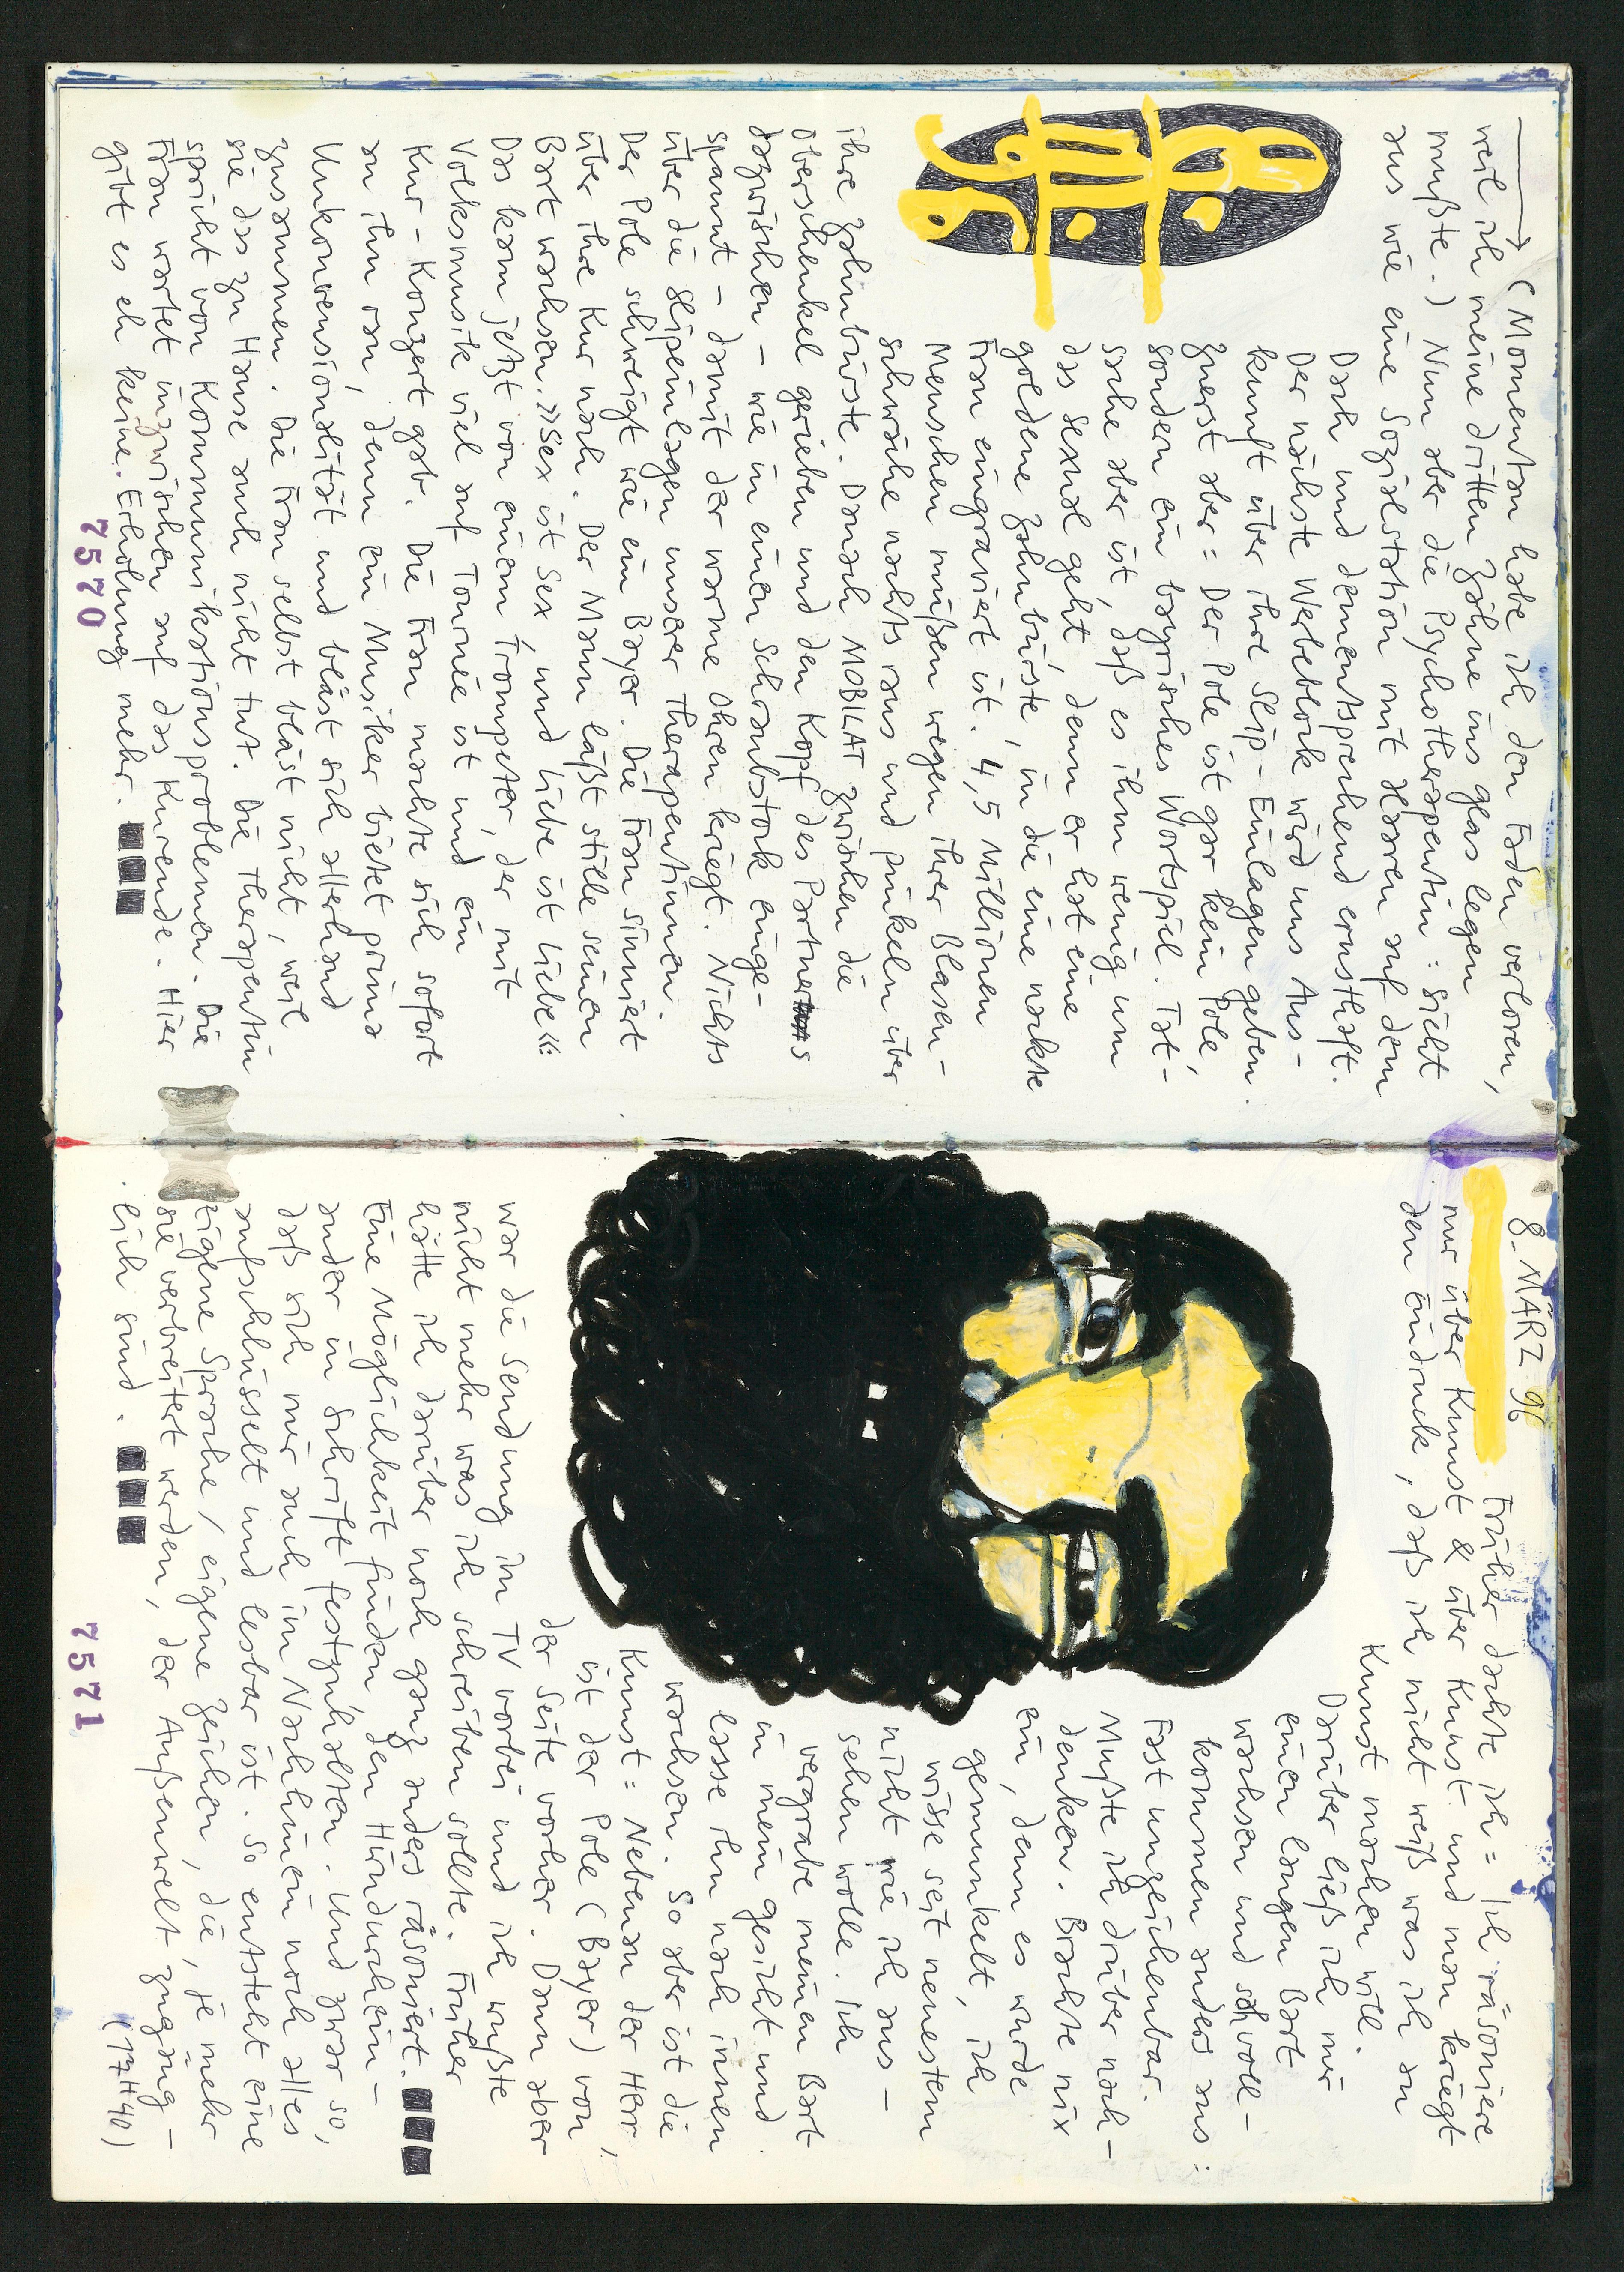 (Momentan habe ich den Faden verloren,
weil ich meine dritten Zähne ins Glas legen
mußte.) Nun aber die Psychotherapeutin: sieht
aus wie eine Sozialstation mit Haaren auf dem
Dach und dementsprechend ernsthaft.
Der nächste Werbeblock wird uns Aus-
kunft über ihre Slip-Einlagen geben.
Zuerst aber: Der Pole ist gar kein Pole,
sondern ein bayrisches Wortspiel. Tat-
sache aber ist, daß es ihm wenig um
das Sexual geht, denn er hat eine
goldene Zahnbürste, in die eine nackte
Frau eingraviert ist. 4,5 Millionen
Menschen müßen wegen ihrer Blasen-
schwäche nachts raus und pinkeln über
ihre Zahnbürste. Danach MOBILAT zwischen die
Oberschenkel gerieben und den Kopf des Partners
dazwischen – wie in einen Schraubstock einge-
spannt – damit der warme Ohren kriegt. Nichts
über die Slipeinlagen unserer Therapeutinnen.
Der Pole schweigt wie ein Bayer. Die Frau sinniert
über ihre Kur nach. Der Mann läßt stille seinen
Bart wachsen. »Sex ist Sex, und Liebe ist Liebe«:
Das kam jetzt von einem Trompeter, der mit
Volksmusik viel auf Tournée ist und ein
Kur-Konzert gab. Die Frau machte sich sofort
an ihn ran, denn ein Musiker bietet prima
Unkonvensionalität und bläst sich allerhand
zusammen. Die Frau selbst bläst nicht, weil
sie das zu Hause auch nicht tut. Die Therapeutin
spricht von Kommunikationsproblemen. Die
Frau wartet inzwischen auf das Kurende. Hier
gibt es eh keine Erholung mehr.
7570
8. MÄRZ 96
Früher dachte ich: Ich räsoniere
nur über Kunst & über Kunst und man kriegt
den Eindruck, daß ich nicht weiß was ich an
Kunst machen will.
Darüber ließ ich mir
einen langen Bart
wachsen und voll-
kommen anders aus:
Fast unzeichenbar.
Mußte ich drüber nach-
denken. Brachte nix
ein, denn es wurde
gemunkelt, ich
wisse seit neuestem
nicht wie ich aus-
sehen wolle. Ich
vergrabe meinen Bart
in mein Gesicht und
lasse ihn nach innen
wachsen. So aber ist die
Kunst: Nebenan der Herr,
ist der Pole (Bayer) von
der Seite vorher. Dann aber
war die Sendung im TV vorbei und ich wußte
nicht mehr was ich schreiben sollte. Früher
hätte ich darüber noch ganz anders räsoniert.
Eine Möglichkeit finden, den Hirndurchein-
ander in Schrift festzuhalten. Und zwar so,
daß sich mir auch im Nachhinein noch alles
aufschlüsselt und lesbar ist. So entsteht eine
eigene Sprache, eigene Zeichen, die, je mehr
sie verbreitert werden, der Außenwelt zugäng-
lich sind.
(17H40)
7571